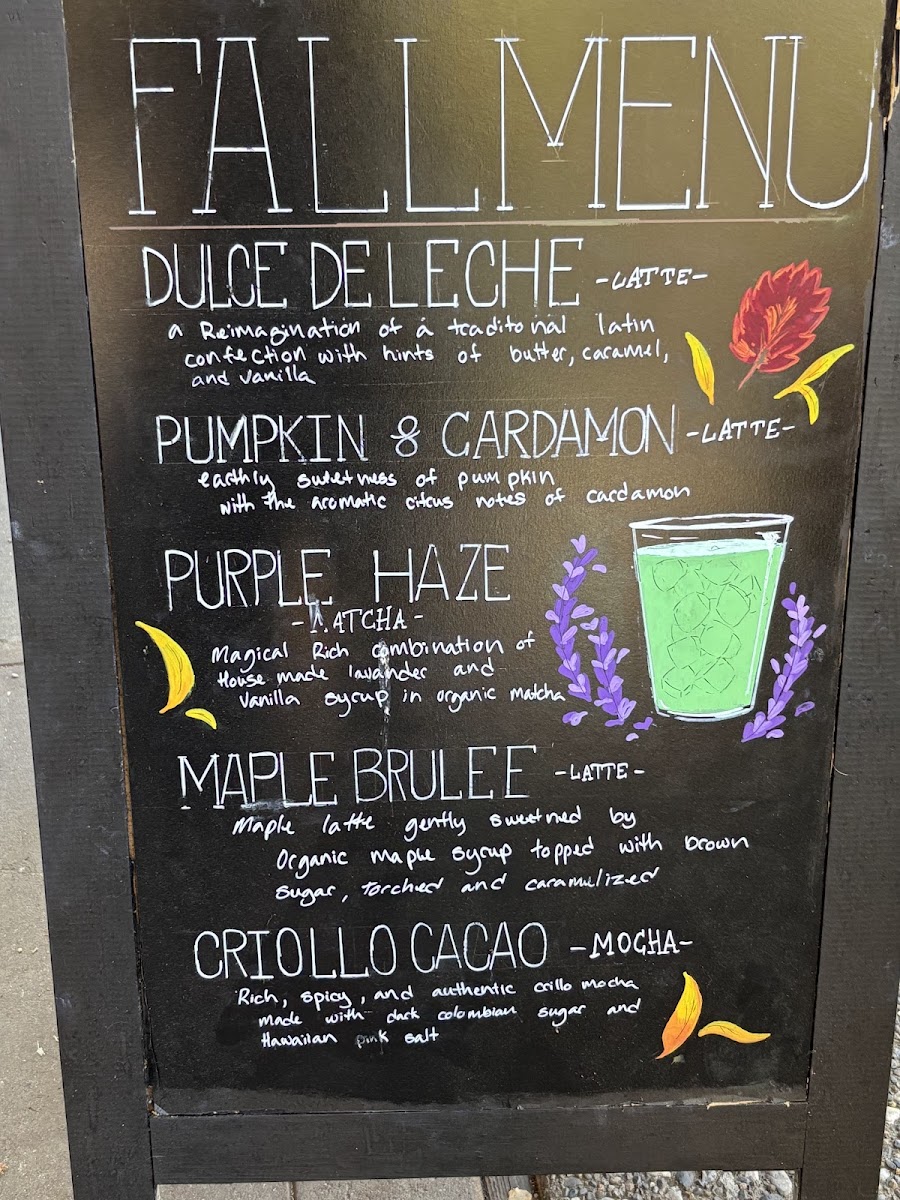 FALL MENU
DULCE DE LECHE -LATTE-
a Reimagination of a traditonal latin
confection with hints of butter, caramel,
and vanilla
PUMPKIN & CARDAMON -LATTE-
earthly sweetness of pumpkin
with the aromatic citrus notes of cardamon
PURPLE HAZE
-MATCHA-
Magical Rich combination of
House made lavander and
Vanilla syrup in organic matcha
MAPLE BRULEE -LATTE-
Maple latte gently sweetned by
Organic maple syrup topped with brown
sugar, torched and caramelized
CRIOLLO CACAO -MOCHA-
Rich, spicy, and authentic crillo mocha
made with dark colombian sugar and
Hawaiian pink salt